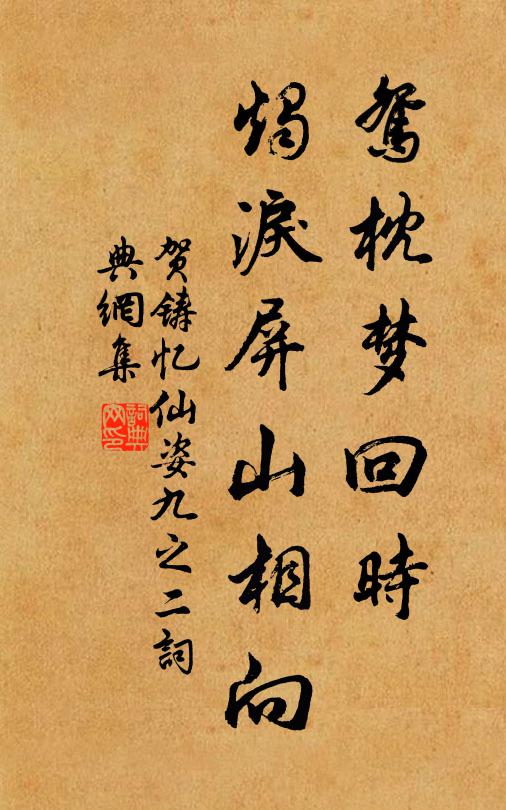 鸳枕梦回時
燭淚屏山相向
贺鑄忆仙姿九之二詞
典網集
詞典網印